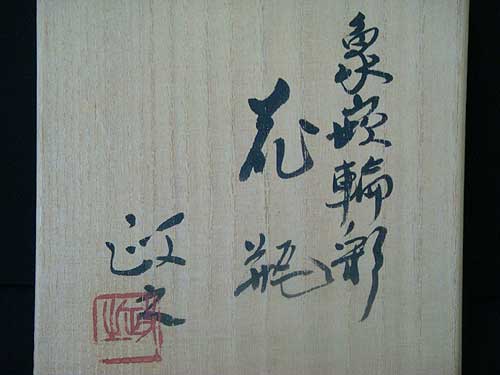 象嵌輪彩
花瓶
政文